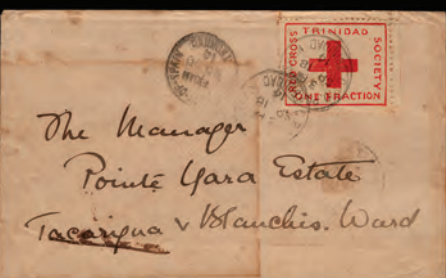 TRINIDAD
RED CROSS
SOCIETY
ONE FRACTION
The Manager
Pointe Gara Estate
Tacarigua v Blanchis. Ward